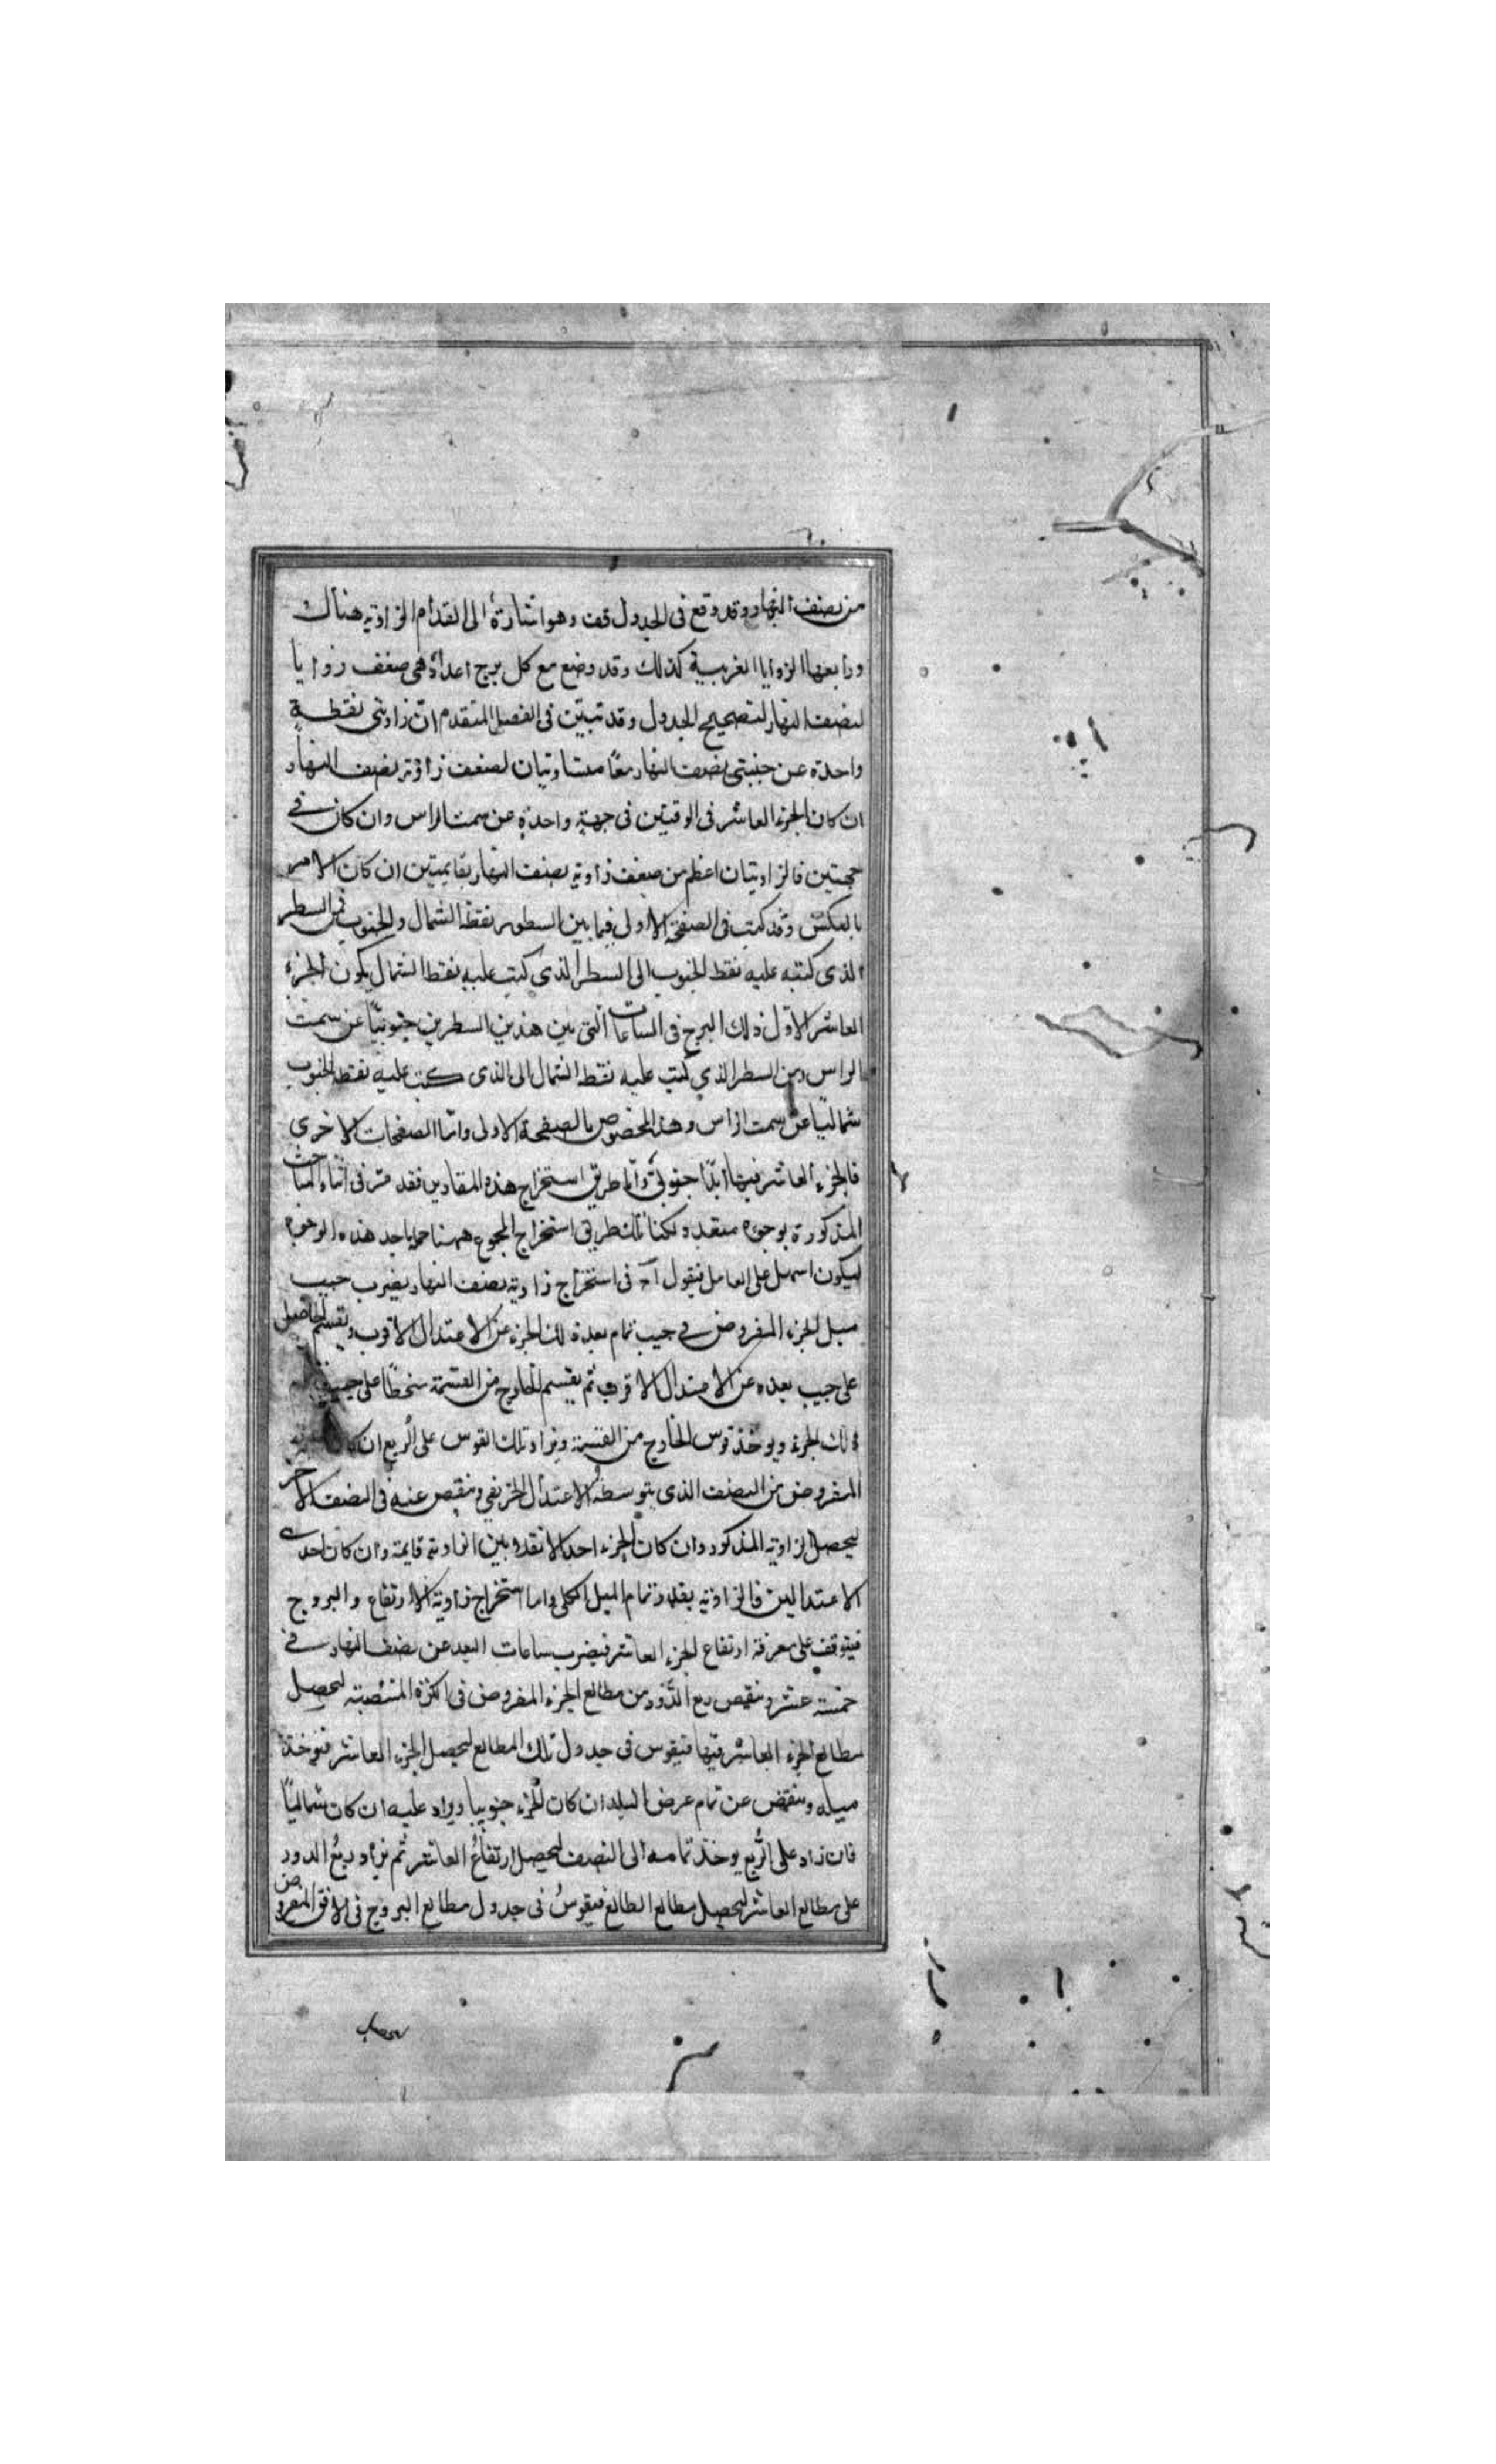 من نصف النهار وقد وقع فى الجدول قف وهو اشارة الى انعدام الزاوية هناك
ورابعها الزوايا الغربية كذلك وقد وضع مع كل برج اعداد هى ضعف زوايا
لنصف النهار لتصحيح الجدول وقد تبيّن فى الفصل المتقدم انّ زاويتى نقطة
واحدة عن جنبتى نصف النهار معًا متساويتان لضعف زاوية نصف النهار
ان كان الجزء العاشر فى الوقتين فى جهة واحدة عن سمت الراس وان كان فى
جهتين فالزاويتان اعظم من ضعف زاوية نصف النهار بقايمتين ان كان الامر
بالعكس وقد كتب فى الصفحة الاولى فيما بين السطور نقط الشمال والجنوب فمن السطر
الذى كتبه عليه نقط الجنوب الى السطر الذى كتب عليه نقط الشمال يكون الجزء
العاشر الاول ذلك البرج فى الساعات التى بين هذين السطرين جنوبيّا عن سمت
الراس ومن السطر الذى كتب عليه نقط الشمال الى الذى كتب عليه نقط الجنوب
شماليّا عن سمت الراس وهذا مخصوص بالصفحة الاولى وامّا الصفحات الاخرى
فالجزء العاشر فيها ابدًا جنوبىّ وامّا طريق استخراج هذه المقادير فقد مرّ فى اثناء المباحث
المذكورة بوجوه متعدد ولكنا طريق استخراج المجموع ههنا باحد هذه الوجوه
ليكون اسهل على العامل فنقول آ فى استخراج زاوية نصف النهار يضرب جيب
ميل الجزء المفروض فى جيب تمام بعد ذلك الجزء عن الاعتدال الاقرب ويقسم الحاصل
على جيب بعده عن الاعتدال الاقرب ثم يقسم الخارج من القسمة منحطًا على جيب
ذلك الجزء ويوخذ قوس الخارج من القسمة ويزاد تلك القوس على الربع ان كان
المفروض من النصف الذى يتوسطه الاعتدال الخريفى وينقص عنه فى النصف الاخر
ليحصل الزاوية المذكور وان كان الجزء احد الانقلابين الزاوية قايمة وان كان احدى
الاعتدالين فالزاوية بقدر تمام الميل الكلى واما استخراج زاوية الارتفاع والبروج
فيتوقف على معرفة ارتفاع الجزء العاشر فيضرب ساعات البعد عن نصف النهار فى
خمسة عشر وينقص مع الدور من مطالع الجزء المفروض فى الكرة المنتصبة ليحصل
مطالع الجزء العاشر فيها فيقوس فى جدول تلك المطالع ليحصل الجزء العاشر فيوخذ
ميله وينقص عن تمام عرض البلد ان كان الجزء جنوبيا ويزاد عليه ان كان شماليًا
فان زاد على الربع يوخذ تمامه الى النصف ليحصل ارتفاع العاشر ثم يزاد ربع الدور
على مطالع العاشر ليحصل مطالع الطالع فيقوس فى جدول مطالع البروج فى الافق المفروض
ليحصل